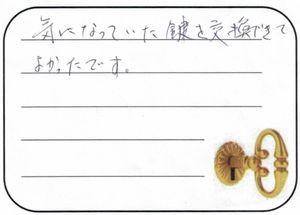 気になっていた鍵を交換できて
よかったです。